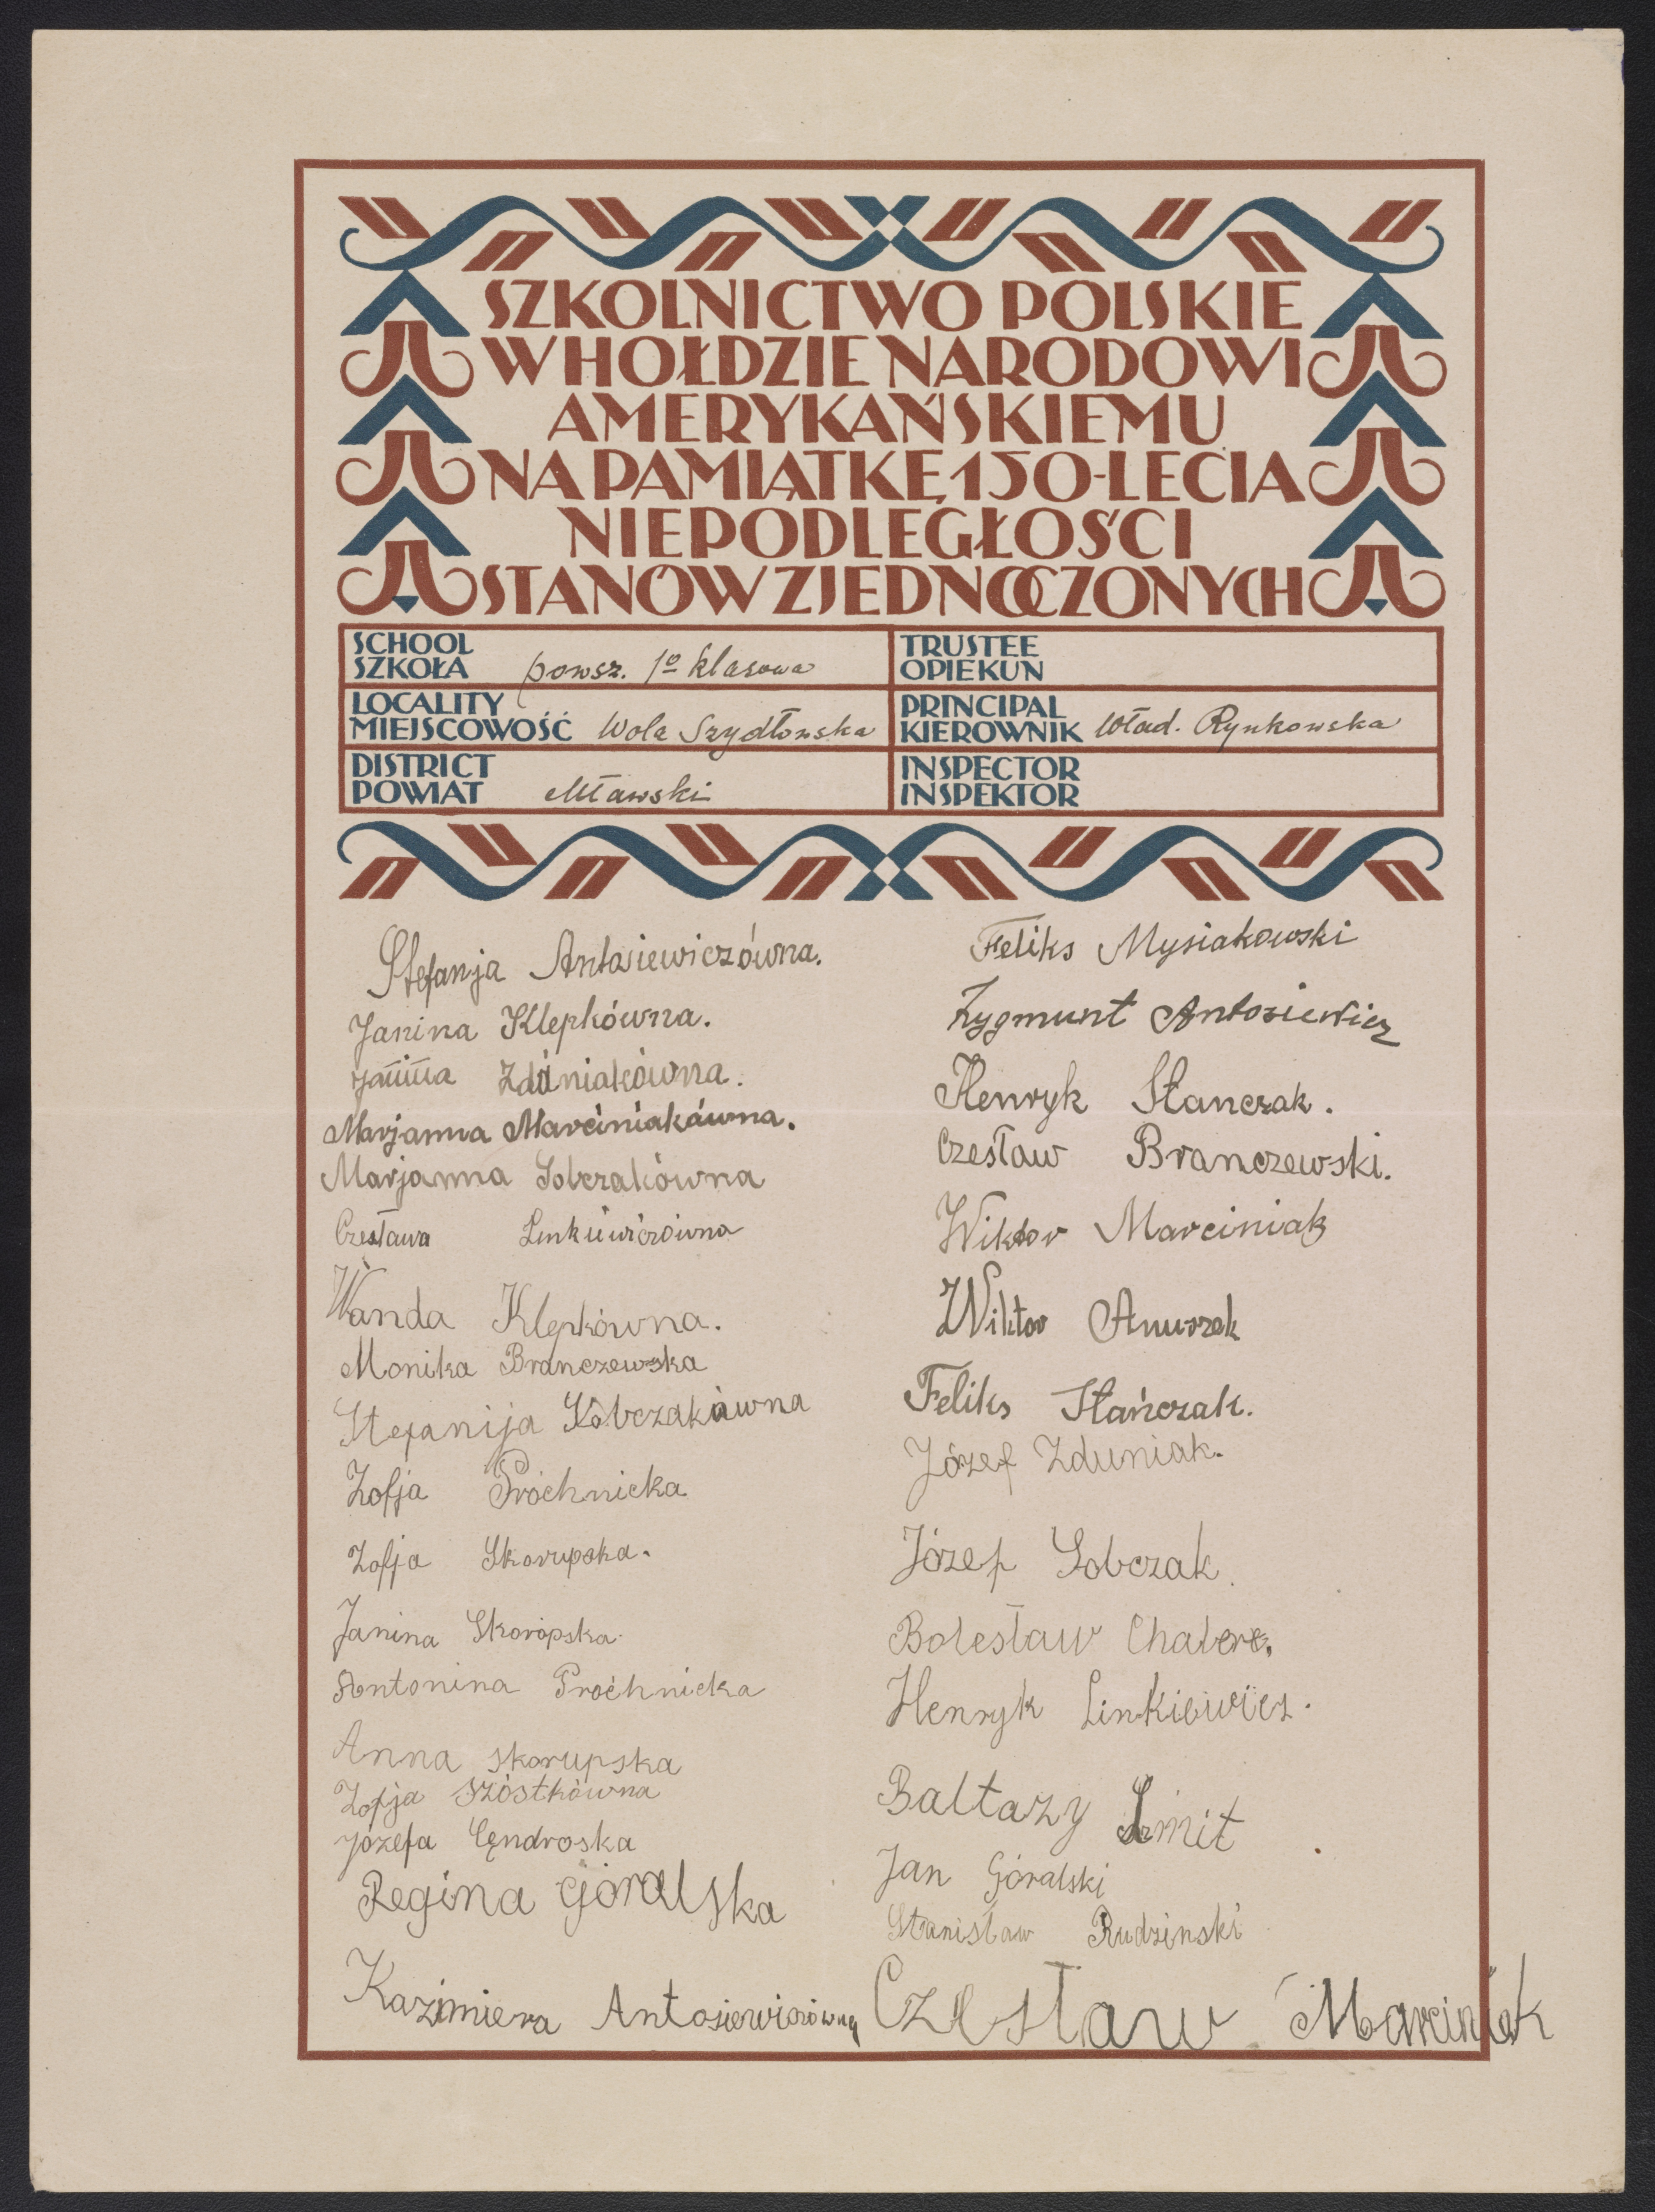 SZKOLNICTWO POLSKIE
W HOŁDZIE NARODOWI
AMERYKAŃSKIEMU
NA PAMIĄTKĘ 150-LECIA
NIEPODLEGŁOŚCI
STANÓW ZJEDNOCZONYCH
SCHOOL
SZKOŁA powsz. 1º klasowa
TRUSTEE
OPIEKUN
LOCALITY
MIEJSCOWOŚĆ Wola Szydłowska
PRINCIPAL
KIEROWNIK Wład. Rynkowska
DISTRICT
POWIAT Mławski
INSPECTOR
INSPEKTOR
Stefanja Antosiewiczówna.
Janina Klepkówna.
Janina Zduniakówna.
Marjanna Marciniakówna.
Marjanna Sobczakówna
Czesława Linkiewiczówna
Wanda Klepkówna.
Monika Branczewska
Stefanija Sobczakówna
Zofja Próchnicka
Zofja Skorupska.
Janina Skoropska
Antonina Próchnicka
Anna Skorupska
Zofja Szóstkówna
Józefa Cęndroska
Regina Góralska
Kazimiera Antosiewiczówna
Feliks Mysiakowski
Zygmunt Antosiewicz
Henryk Stanczak.
Czesław Branczewski.
Wiktor Marciniak
Wiktor Anuszek
Feliks Stańczak.
Józef Zduniak.
Józef Sobczak.
Bolesław
Henryk Linkiewicz.
Baltazy Szmit
Jan Góralski
Stanisław Rudzinski
Czesław Marciniak